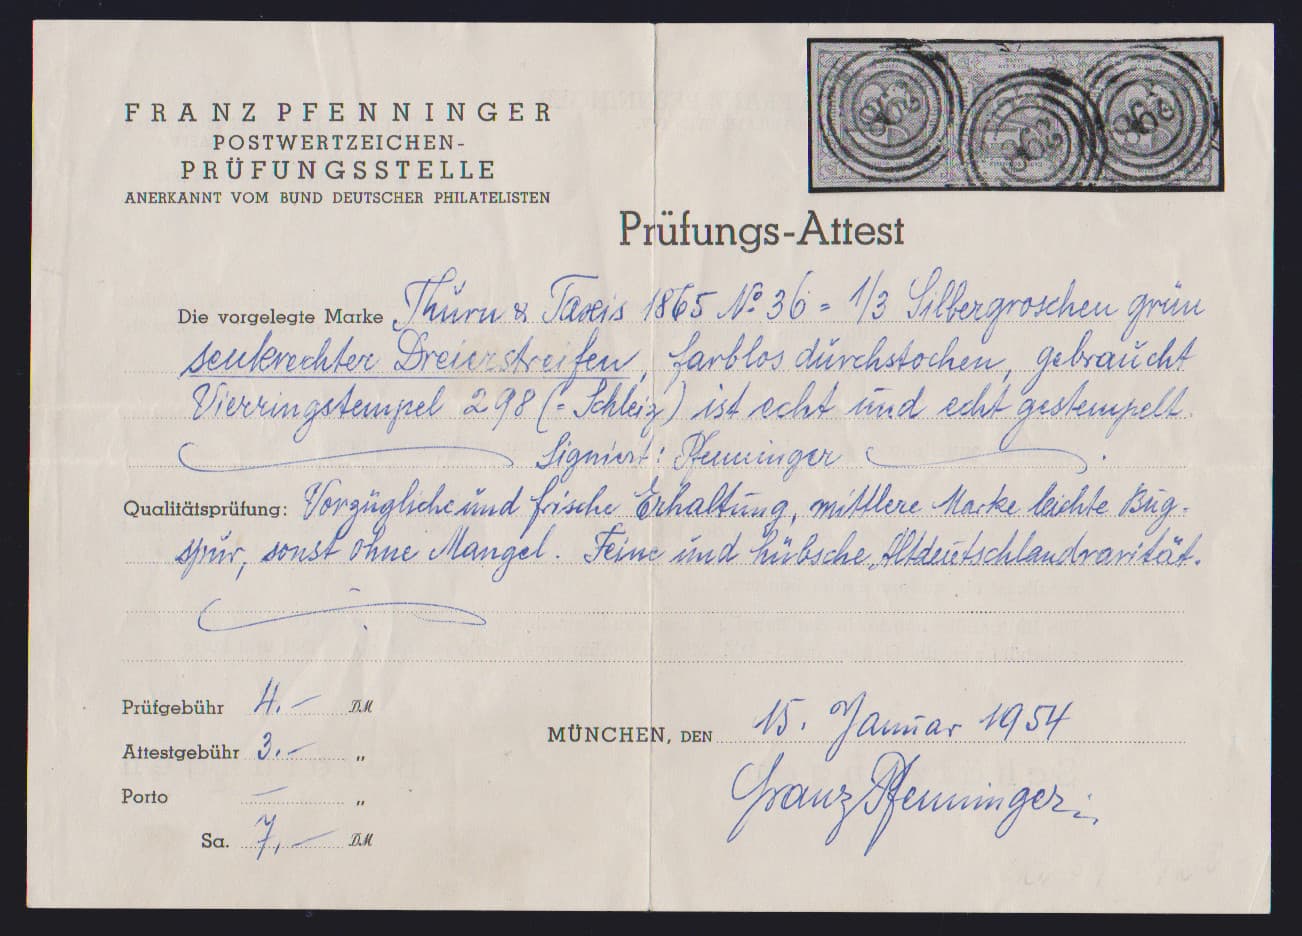 298
298
298
FRANZ PFENNINGER
POSTWERTZEICHEN-
PRÜFUNGSSTELLE
ANERKANNT VOM BUND DEUTSCHER PHILATELISTEN
Prüfungs-Attest
Die vorgelegte Marke Thurn & Taxis 1865 No 36 = 1/3 Silbergroschen grün
senkrechter Dreierstreifen, farblos durchstochen, gebraucht
Vierringstempel 298 (= Schleiz) ist echt und echt gestempelt.
Signiert: Pfenninger
Qualitätsprüfung: Vorzügliche und frische Erhaltung, mittlere Marke leichte Bug-
spur, sonst ohne Mangel. Feine und hübsche Altdeutschlandrarität.
Prüfgebühr 4.— DM
Attestgebühr 3.— „
Porto — „
Sa. 7.— DM
MÜNCHEN, DEN 15. Januar 1954
Franz Pfenninger